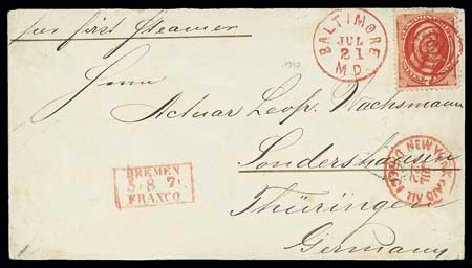 per first Steamer
BALTIMORE
JUL
21
MD.
Herrn
Actuar Leop. Wachsmann
Sondershausen
Thüringen
Germany
BREMEN
3 8 7
FRANCO
NEW YORK
PAID ALL